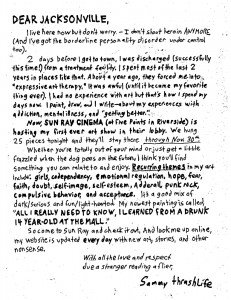 DEAR JACKSONVILLE,
I live here now but don't worry - I don't shoot heroin ANYMORE
(And I've got the borderline personality disorder under control
too).
2 days before I got to town, I was discharged (successfully
this time!) from a treatment facility. I spent most of the last 2
years in places like that. About a year ago, they forced me into
"expressive art therapy." It was awful (until it became my favorite
thing ever). I had no experience with art but that's how I spend my
days now. I paint, draw, and I write - about my experiences with
addiction, mental illness, and "getting better."
Now, SUN RAY CINEMA (at Five Points in Riverside) is
hosting my first ever art show in their lobby. We hung
25 pieces tonight and they'll stay there through Nov 30th.
Whether you're totally out of your mind or just get a little
frazzled when the dog pees on the futon, I think you'll find
something you can relate to and enjoy. Recurring themes in my art
include: girls, codependency, emotional regulation, hope, fear,
faith, doubt, self-image, self-esteem, Adderall, punk rock,
compulsive behavior, and acceptance. It's a good mix of
dark/serious and fun/light-hearted. My newest painting is called
"ALL I REALLY NEED TO KNOW, I LEARNED FROM A DRUNK
14 YEAR-OLD AT THE MALL."
So come to Sun Ray and check it out. And look me up online,
my website is updated every day with new art, stories, and other
nonsense.
With all the love and respect
due a stranger reading a flier,
Sammy thrashLife